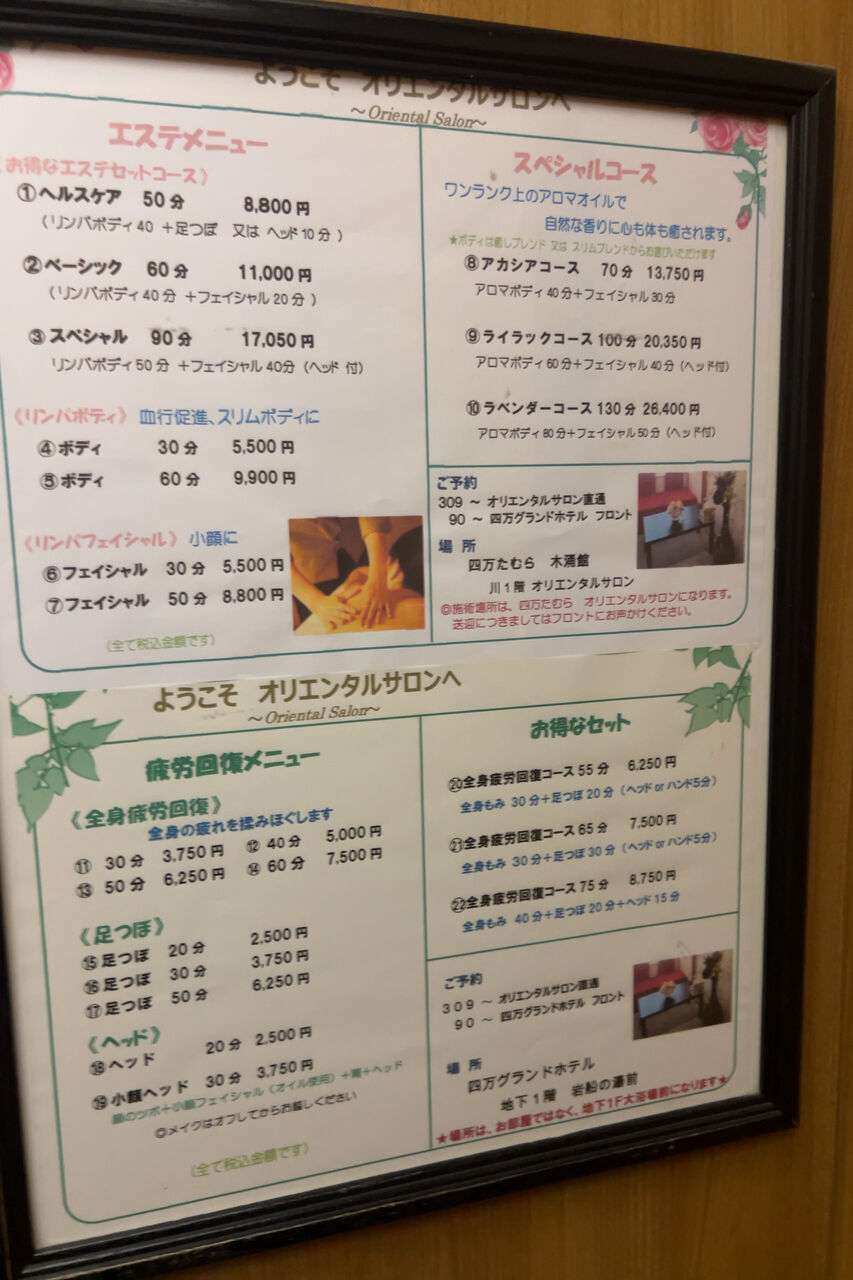 ようこそ オリエンタルサロンへ
～Oriental Salon～
エステメニュー
《お得なエステセットコース》
①ヘルスケア 50分 8,800円
(リンパボディ40 +足つぼ 又は ヘッド10分)
②ベーシック 60分 11,000円
(リンパボディ40分 +フェイシャル20分)
③スペシャル 90分 17,050円
リンパボディ50分 +フェイシャル40分(ヘッド付)
《リンパボディ》 血行促進、スリムボディに
④ボディ 30分 5,500円
⑤ボディ 60分 9,900円
《リンパフェイシャル》 小顔に
⑥フェイシャル 30分 5,500円
⑦フェイシャル 50分 8,800円
(全て税込金額です)
スペシャルコース
ワンランク上のアロマオイルで
自然な香りに心も体も癒されます。
★ボディは癒しブレンド 又は スリムブレンドからお選びいただけます
⑧アカシアコース 70分 13,750円
アロマボディ40分+フェイシャル30分
⑨ライラックコース 100分 20,350円
アロマボディ60分+フェイシャル40分(ヘッド付)
⑩ラベンダーコース 130分 26,400円
アロマボディ80分+フェイシャル50分(ヘッド付)
ご予約
309 ～ オリエンタルサロン直通
90 ～ 四万グランドホテル フロント
場 所
四万たむら 木涌館
川1階 オリエンタルサロン
◎施術場所は、四万たむら オリエンタルサロンになります。
送迎につきましてはフロントにお声かけください。
ようこそ オリエンタルサロンへ
～Oriental Salon～
疲労回復メニュー
《全身疲労回復》
全身の疲れを揉みほぐします
⑪ 30分 3,750円 ⑫ 40分 5,000円
⑬ 50分 6,250円 ⑭ 60分 7,500円
《足つぼ》
⑮足つぼ 20分 2,500円
⑯足つぼ 30分 3,750円
⑰足つぼ 50分 6,250円
《ヘッド》
⑱ヘッド 20分 2,500円
⑲小顔ヘッド 30分 3,750円
顔のツボ+小顔フェイシャル(オイル使用)+肩+ヘッド
◎メイクはオフしてからお越しください
(全て税込金額です)
お得なセット
⑳全身疲労回復コース55分 6,250円
全身もみ 30分+足つぼ20分(ヘッド or ハンド5分)
㉑全身疲労回復コース65分 7,500円
全身もみ 30分+足つぼ30分(ヘッド or ハンド5分)
㉒全身疲労回復コース75分 8,750円
全身もみ 40分+足つぼ20分+ヘッド15分
ご予約
309 ～ オリエンタルサロン直通
90 ～ 四万グランドホテル フロント
場 所
四万グランドホテル
地下1階 岩船の湯前
★場所は、お部屋ではなく、地下1F大浴場前になります★